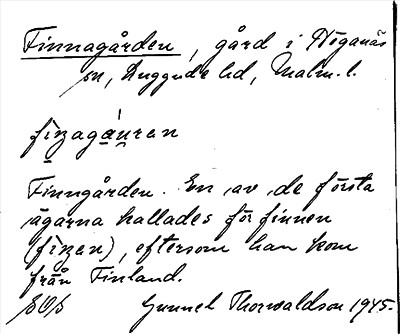 Finnagården, gård i Höganäs
sn, Luggude hd, Malm. l.
Finngården. En av de första
ägarna kallades för finnen
eftersom han kom
från Finland.
Gunnel Thorwaldson 1945.